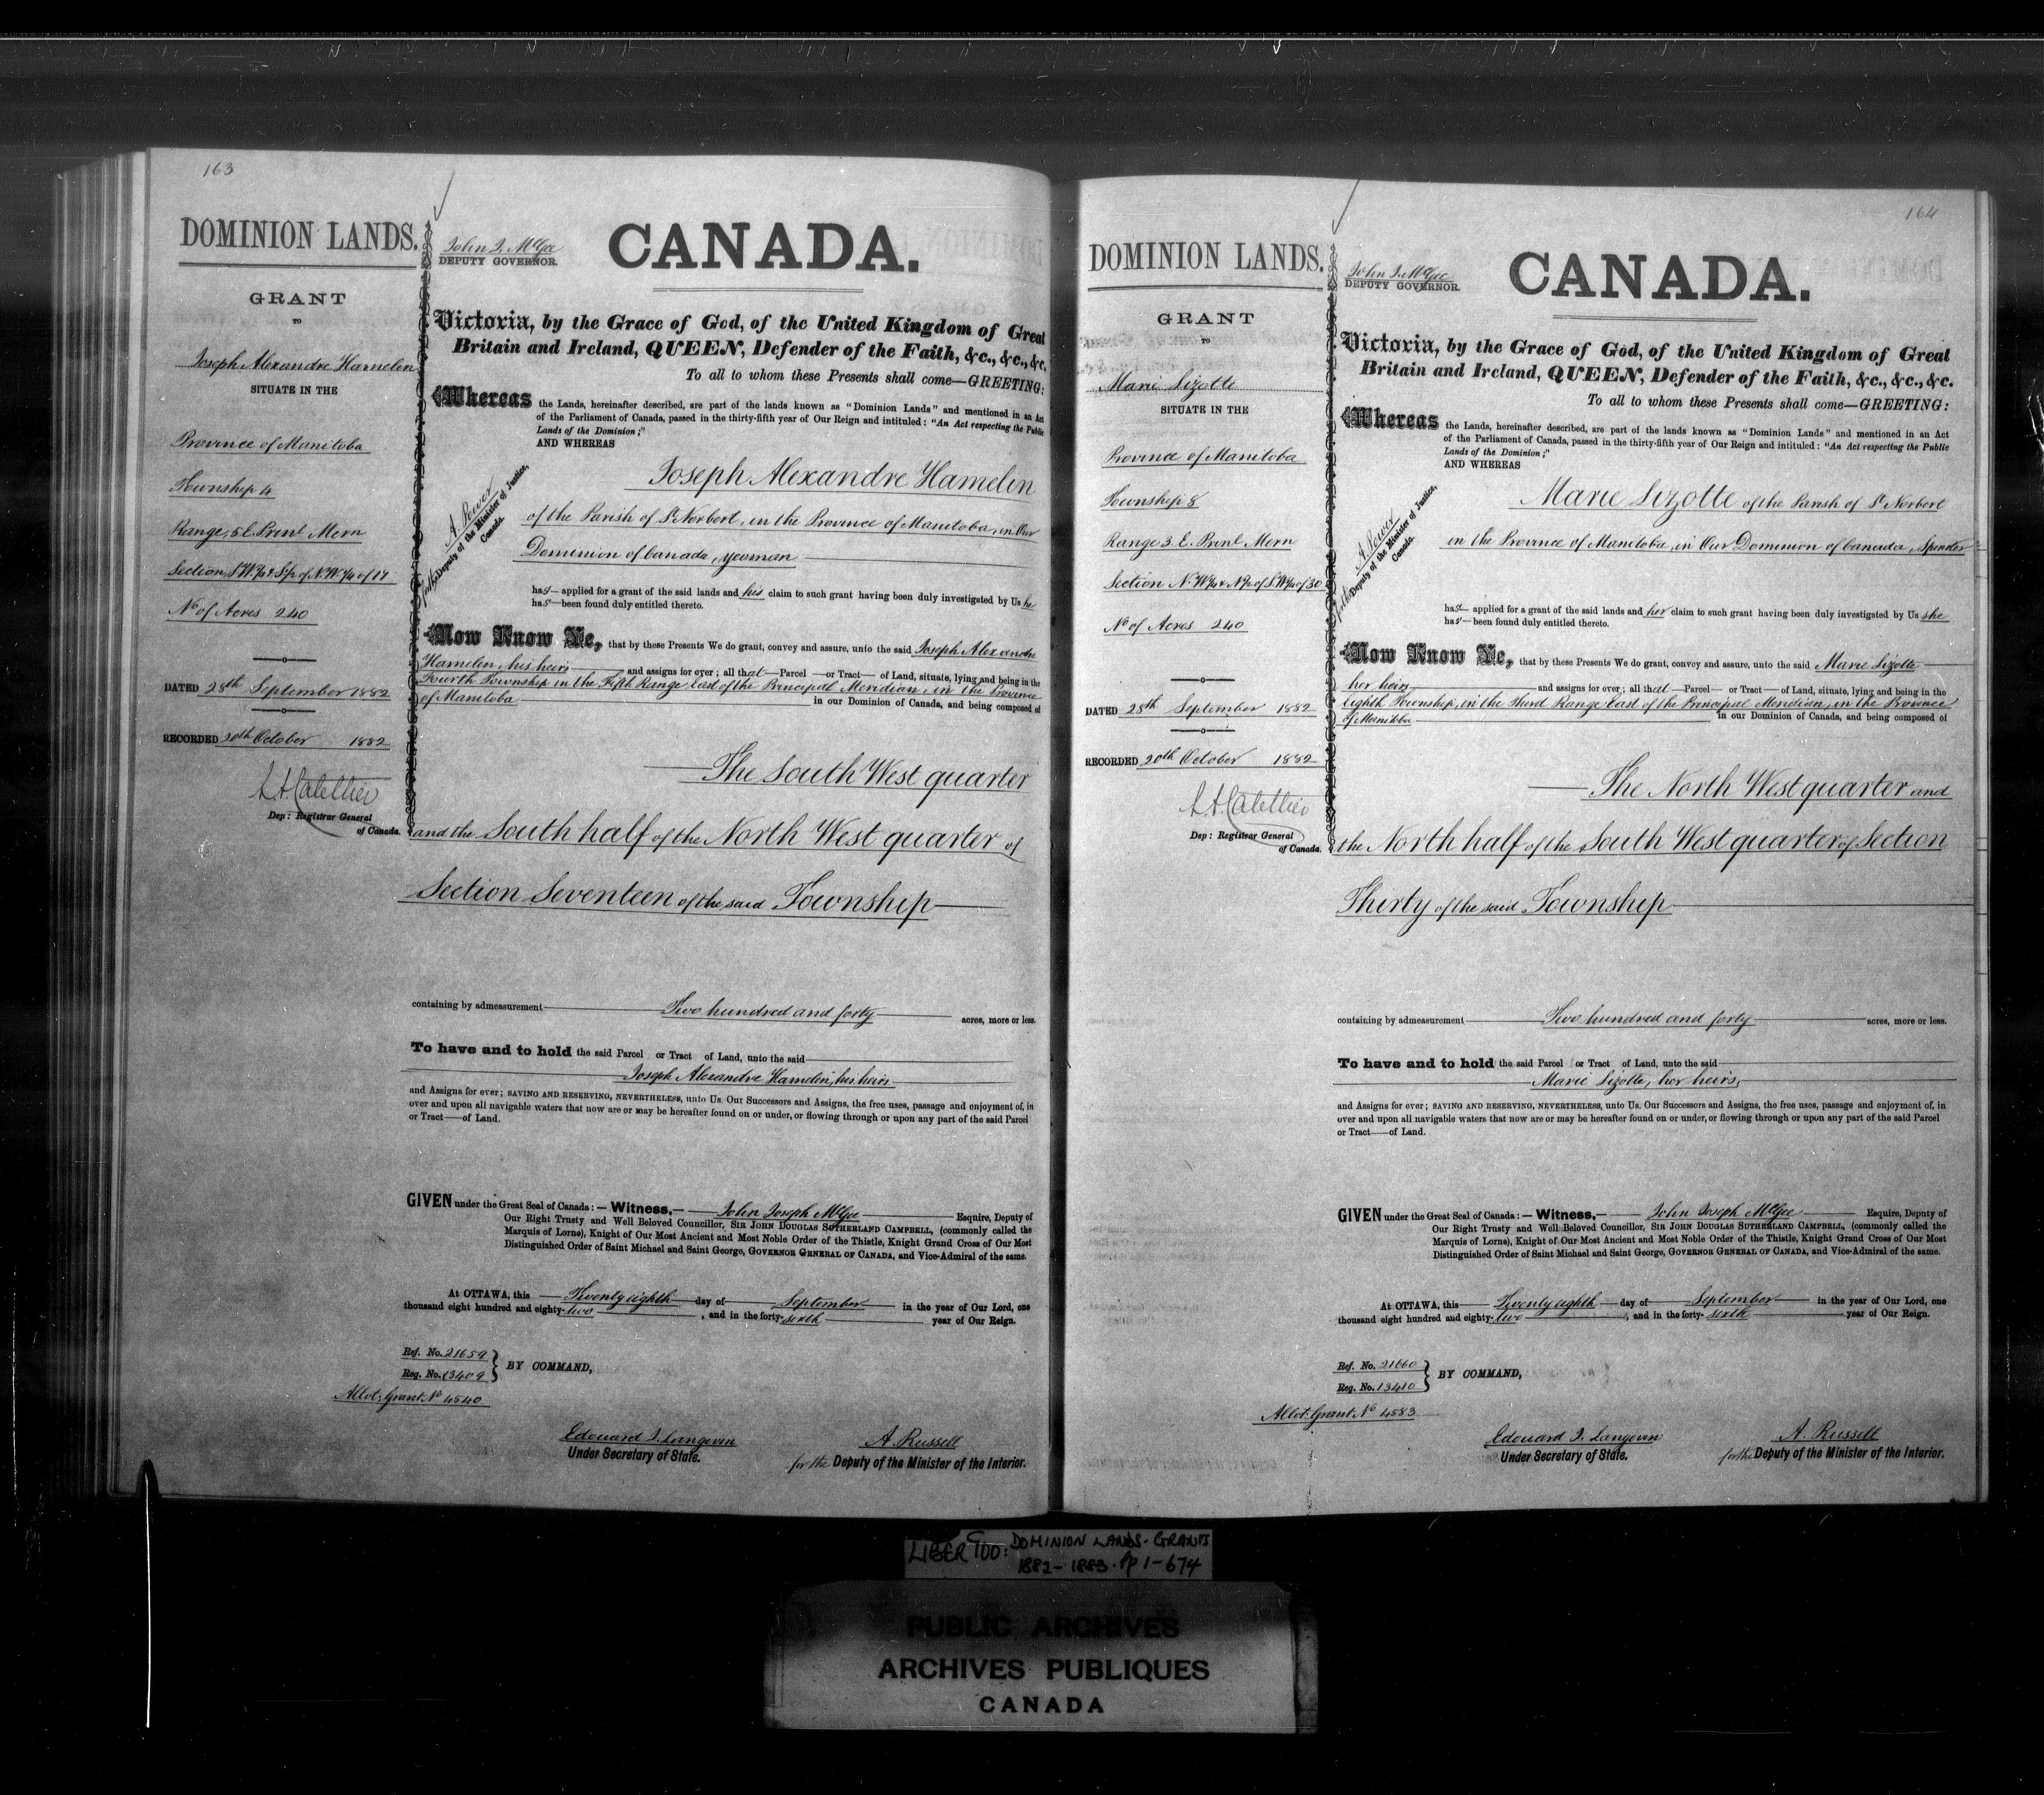 163
DOMINION LANDS.
GRANT
TO
Joseph Alexandre Hamelin
SITUATE IN THE
Province of Manitoba
Township 4
Range, 5 E. Prinl Mern
Section, S.W.¼ & S½ of N.W.¼ of 17
No of Acres 240
DATED 28th September 1882
RECORDED 20th October 1882
Dep: Registrar General
of Canada.
John J. McGee
DEPUTY GOVERNOR.
CANADA.
Victoria, by the Grace of God, of the United Kingdom of Great
Britain and Ireland, QUEEN, Defender of the Faith, &c., &c., &c.
To all to whom these Presents shall come—GREETING:
Whereas the Lands, hereinafter described, are part of the lands known as "Dominion Lands" and mentioned in an Act
of the Parliament of Canada, passed in the thirty-fifth year of Our Reign and intituled: "An Act respecting the Public
Lands of the Dominion;"
AND WHEREAS
A. Power
for the Deputy of the Minister of Justice,
Canada.
Joseph Alexandre Hamelin
of the Parish of St Norbert, in the Province of Manitoba, in Our
Dominion of Canada, yeoman
has applied for a grant of the said lands and his claim to such grant having been duly investigated by Us he
has been found duly entitled thereto.
Now Know Ye, that by these Presents We do grant, convey and assure, unto the said Joseph Alexandre
Hamelin, his heirs and assigns for ever; all that Parcel or Tract of Land, situate, lying and being in the
Fourth Township in the Fifth Range East of the Principal Meridian, in the Province
of Manitoba in our Dominion of Canada, and being composed of
The South West quarter
and the South half of the North West quarter of
Section Seventeen of the said Township
containing by admeasurement Two hundred and forty acres, more or less.
To have and to hold the said Parcel or Tract of Land, unto the said
Joseph Alexandre Hamelin, his heirs
and Assigns for ever; SAVING AND RESERVING, NEVERTHELESS, unto Us, Our Successors and Assigns, the free uses, passage and enjoyment of, in
over and upon all navigable waters that now are or may be hereafter found on or under, or flowing through or upon any part of the said Parcel
or Tract—of Land.
GIVEN under the Great Seal of Canada:—Witness,—John Joseph McGee Esquire, Deputy of
Our Right Trusty and Well Beloved Councillor, SIR JOHN DOUGLAS SUTHERLAND CAMPBELL, (commonly called the
Marquis of Lorne), Knight of Our Most Ancient and Most Noble Order of the Thistle, Knight Grand Cross of Our Most
Distinguished Order of Saint Michael and Saint George, GOVERNOR GENERAL OF CANADA, and Vice-Admiral of the same.
At OTTAWA, this Twenty eighth day of September in the year of Our Lord, one
thousand eight hundred and eighty-two, and in the forty-sixth year of Our Reign.
Ref. No. 21659
Reg. No. 13409
BY COMMAND,
Allot: Grant No 4540
Edouard J. Langevin
Under Secretary of State.
A. Russell
for the Deputy of the Minister of the Interior.
164
DOMINION LANDS.
GRANT
TO
Marie Lizotte
SITUATE IN THE
Province of Manitoba
Township 8
Range 3. E. Prinl Mern
Section N.W.¼ & N½ of S.W.¼ of 30
No of Acres 240
DATED 28th September 1882
RECORDED 20th October 1882
Dep: Registrar General
of Canada.
John J. McGee
DEPUTY GOVERNOR.
CANADA.
Victoria, by the Grace of God, of the United Kingdom of Great
Britain and Ireland, QUEEN, Defender of the Faith, &c., &c., &c.
To all to whom these Presents shall come—GREETING:
Whereas the Lands, hereinafter described, are part of the lands known as "Dominion Lands" and mentioned in an Act
of the Parliament of Canada, passed in the thirty-fifth year of Our Reign and intituled: "An Act respecting the Public
Lands of the Dominion;"
AND WHEREAS
A. Power
for the Deputy of the Minister of Justice,
Canada.
Marie Lizotte of the Parish of St Norbert
in the Province of Manitoba, in Our Dominion of Canada, Spinster
has applied for a grant of the said lands and her claim to such grant having been duly investigated by Us she
has been found duly entitled thereto.
Now Know Ye, that by these Presents We do grant, convey and assure, unto the said Marie Lizotte
her heirs and assigns for over; all that Parcel or Tract of Land, situate, lying and being in the
Eighth Township, in the Third Range East of the Principal Meridian, in the Province
of Manitoba in our Dominion of Canada, and being composed of
The North West quarter and
the North half of the South West quarter of Section
Thirty of the said Township
containing by admeasurement Two hundred and forty acres, more or less.
To have and to hold the said Parcel or Tract of Land, unto the said
Marie Lizotte, her heirs,
and Assigns for ever; SAVING AND RESERVING, NEVERTHELESS, unto Us, Our Successors and Assigns, the free uses, passage and enjoyment of, in
over and upon all navigable waters that now are or may be hereafter found on or under, or flowing through or upon any part of the said Parcel
or Tract—of Land.
GIVEN under the Great Seal of Canada:—Witness,—John Joseph McGee Esquire, Deputy of
Our Right Trusty and Well Beloved Councillor, SIR JOHN DOUGLAS SUTHERLAND CAMPBELL, (commonly called the
Marquis of Lorne), Knight of Our Most Ancient and Most Noble Order of the Thistle, Knight Grand Cross of Our Most
Distinguished Order of Saint Michael and Saint George, GOVERNOR GENERAL OF CANADA, and Vice-Admiral of the same.
At OTTAWA, this Twenty eighth day of September in the year of Our Lord, one
thousand eight hundred and eighty-two, and in the forty-sixth year of Our Reign.
Ref. No. 21660
Reg. No. 13410
BY COMMAND,
Allot: Grant No 4583
Edouard J. Langevin
Under Secretary of State.
A. Russell
for the Deputy of the Minister of the Interior.
LIBER 900: DOMINION LANDS-GRANTS
1882-1883. Pp 1-674
PUBLIC ARCHIVES
ARCHIVES PUBLIQUES
CANADA